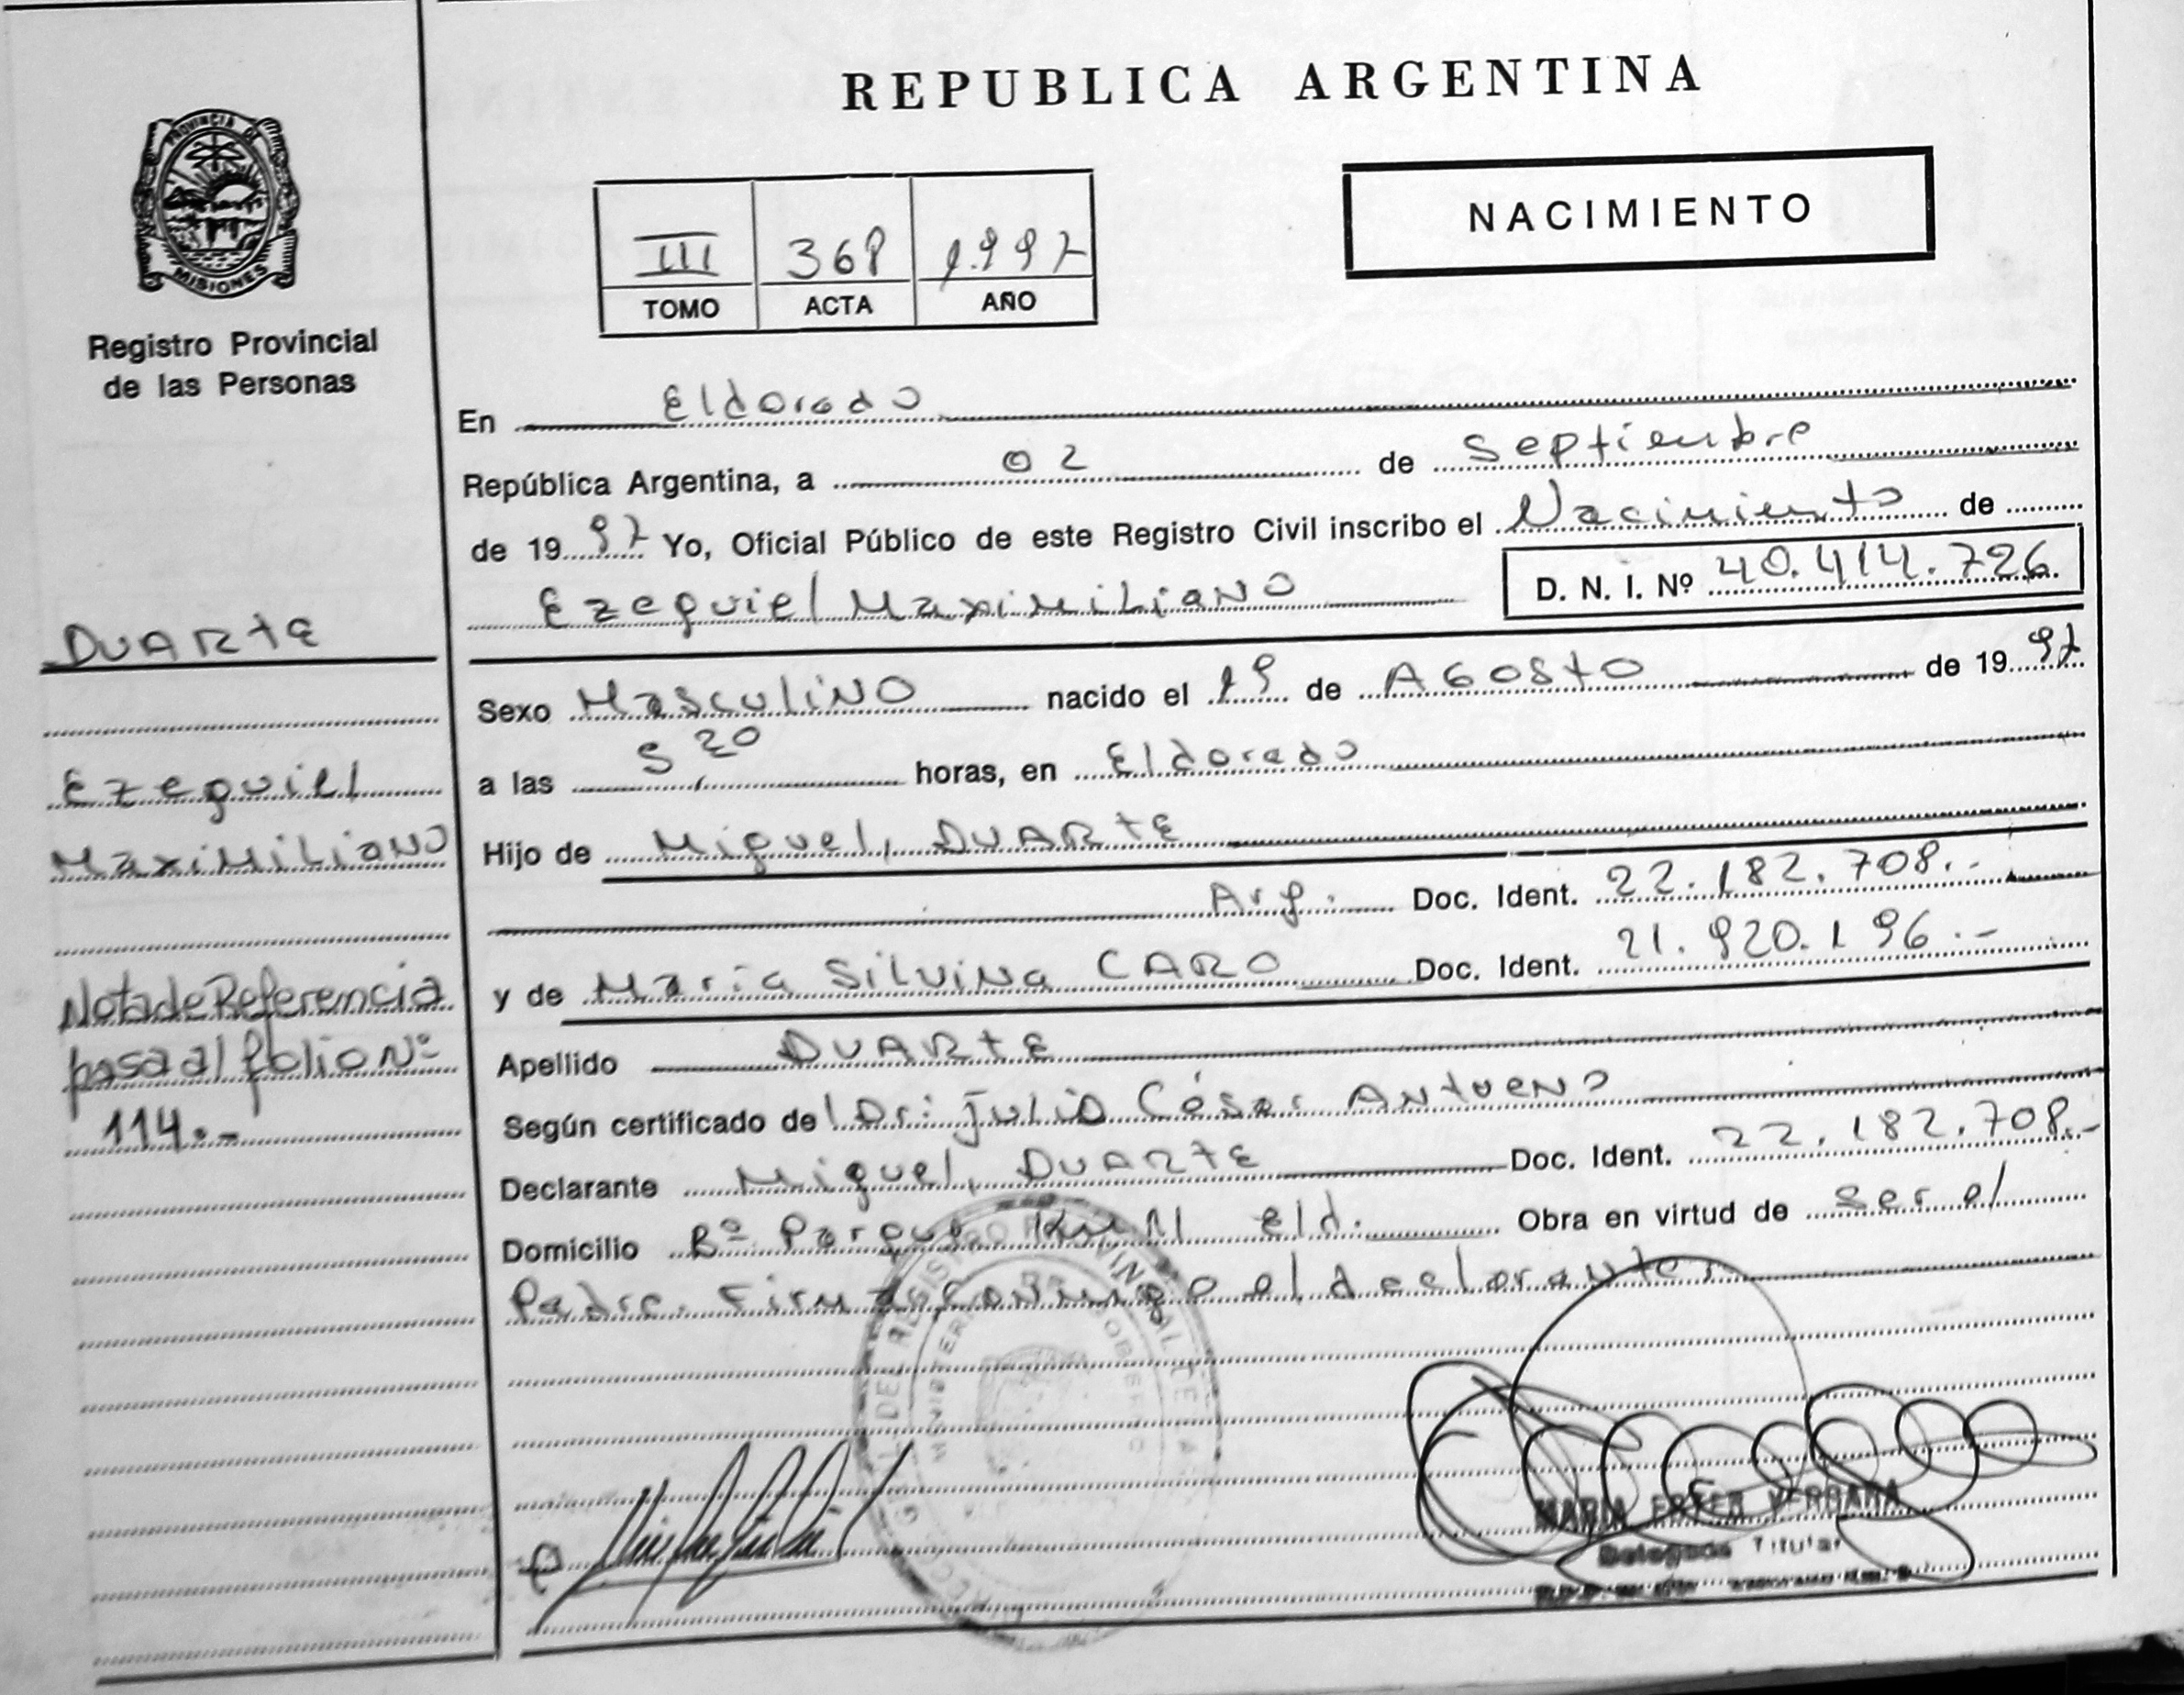 REPUBLICA ARGENTINA
PROVINCIA DE
MISIONES
Registro Provincial
de las Personas
NACIMIENTO
III 368 1.997
TOMO ACTA AÑO
En Eldorado
República Argentina, a 02 de Septiembre
de 19 97 Yo, Oficial Público de este Registro Civil inscribo el Nacimiento de
Ezequiel Maximiliano D. N. I. Nº 40.414.726.
DUARTE
Ezequiel
Maximiliano
Nota de Referencia
pasa al folio Nº
114.-
Sexo Masculino nacido el 19 de AGOSTO de 19 97
a las 5 20 horas, en Eldorado
Hijo de Miguel, DUARTE
Arg. Doc. Ident. 22.182.708.-
y de María Silvina CARO Doc. Ident. 21.920.196.-
Apellido DUARTE
Según certificado de Dr: Julio César Antueno
Declarante Miguel, DUARTE Doc. Ident. 22.182.708.-
Domicilio Bº Parque Kuhl eld. Obra en virtud de ser el
Padre. Firma conmigo el declarante.
MARIA ESTER VERGARA
Delegada Titular